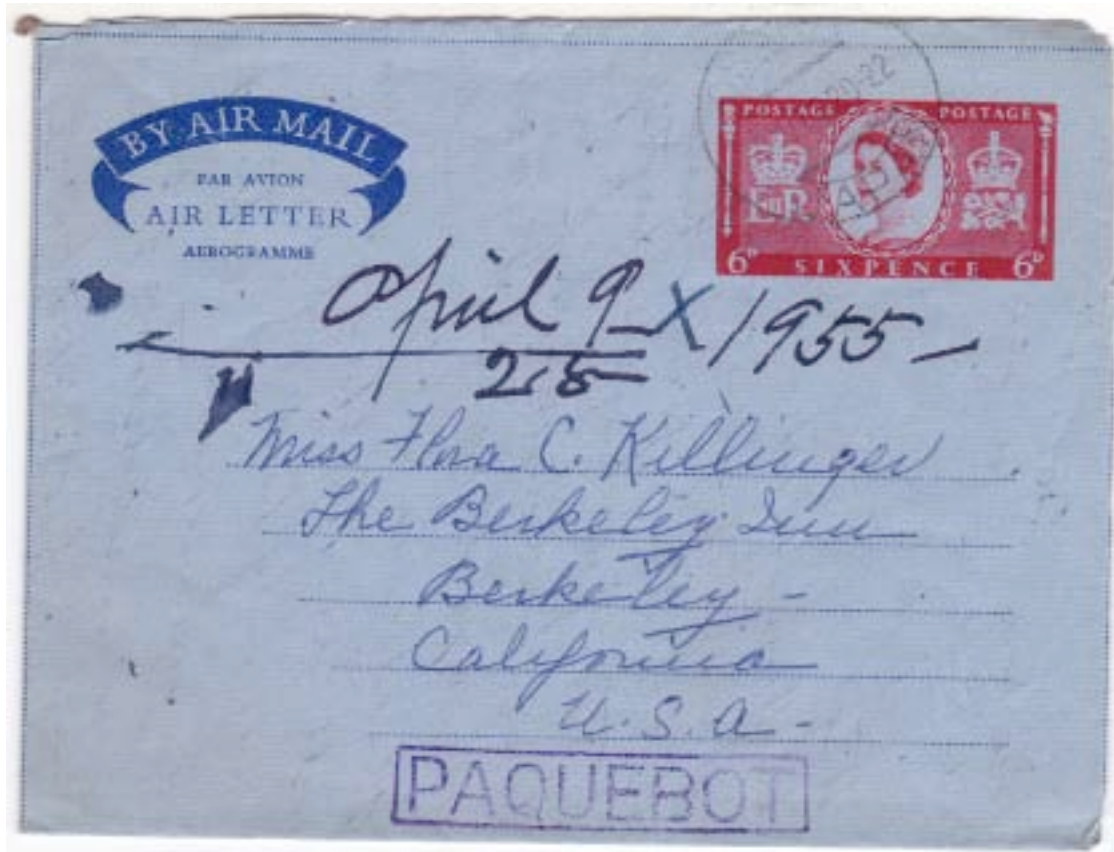 BY AIR MAIL
PAR AVION
AIR LETTER
AEROGRAMME
20-22
POSTAGE POSTAGE
EIIR
6D SIXPENCE 6D
April 9 X 1955
25
Miss Flora C. Killinger
The Berkeley Inn
Berkeley -
California
U.S.A -
PAQUEBOT